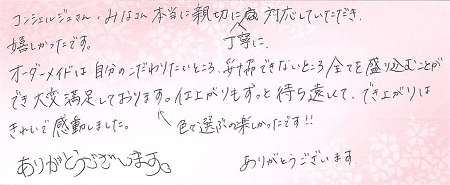 コンシェルジュさん・みなさん本当に親切に対応していただき、
丁寧に、
嬉しかったです。
オーダーメイドは自分のこだわりたいところ、妥協できないところ全てを盛り込むことが
でき大変満足しております。仕上がりもずっと待ち遠しくて、でき上がりは
きれいで感動しました。
色で選ぶの楽しかったです!!
ありがとうございます。
ありがとうございます